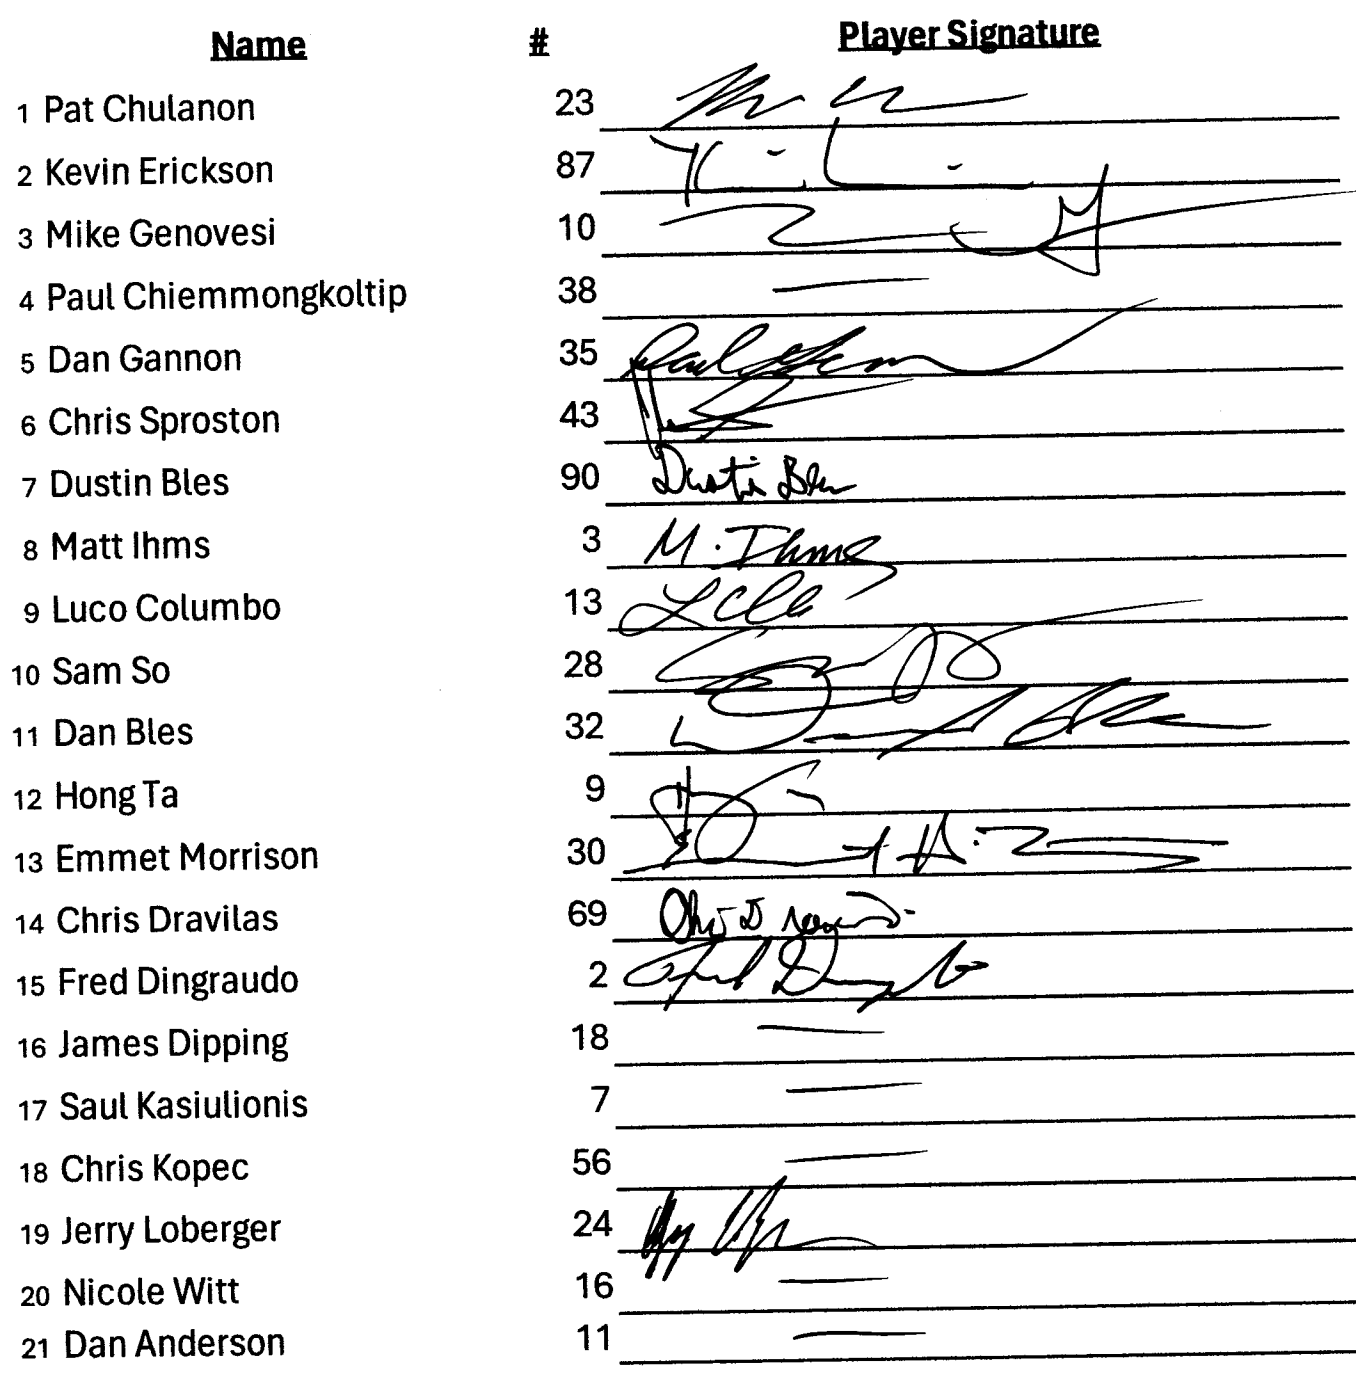 Name # Player Signature
1 Pat Chulanon 23
2 Kevin Erickson 87
3 Mike Genovesi 10
4 Paul Chiemmongkoltip 38 —
5 Dan Gannon 35
6 Chris Sproston 43
7 Dustin Bles 90 Dustin Bles
8 Matt Ihms 3 M. Ihms
9 Luco Columbo 13
10 Sam So 28
11 Dan Bles 32
12 Hong Ta 9
13 Emmet Morrison 30
14 Chris Dravilas 69
15 Fred Dingraudo 2
16 James Dipping 18 —
17 Saul Kasiulionis 7 —
18 Chris Kopec 56 —
19 Jerry Loberger 24
20 Nicole Witt 16 —
21 Dan Anderson 11 —